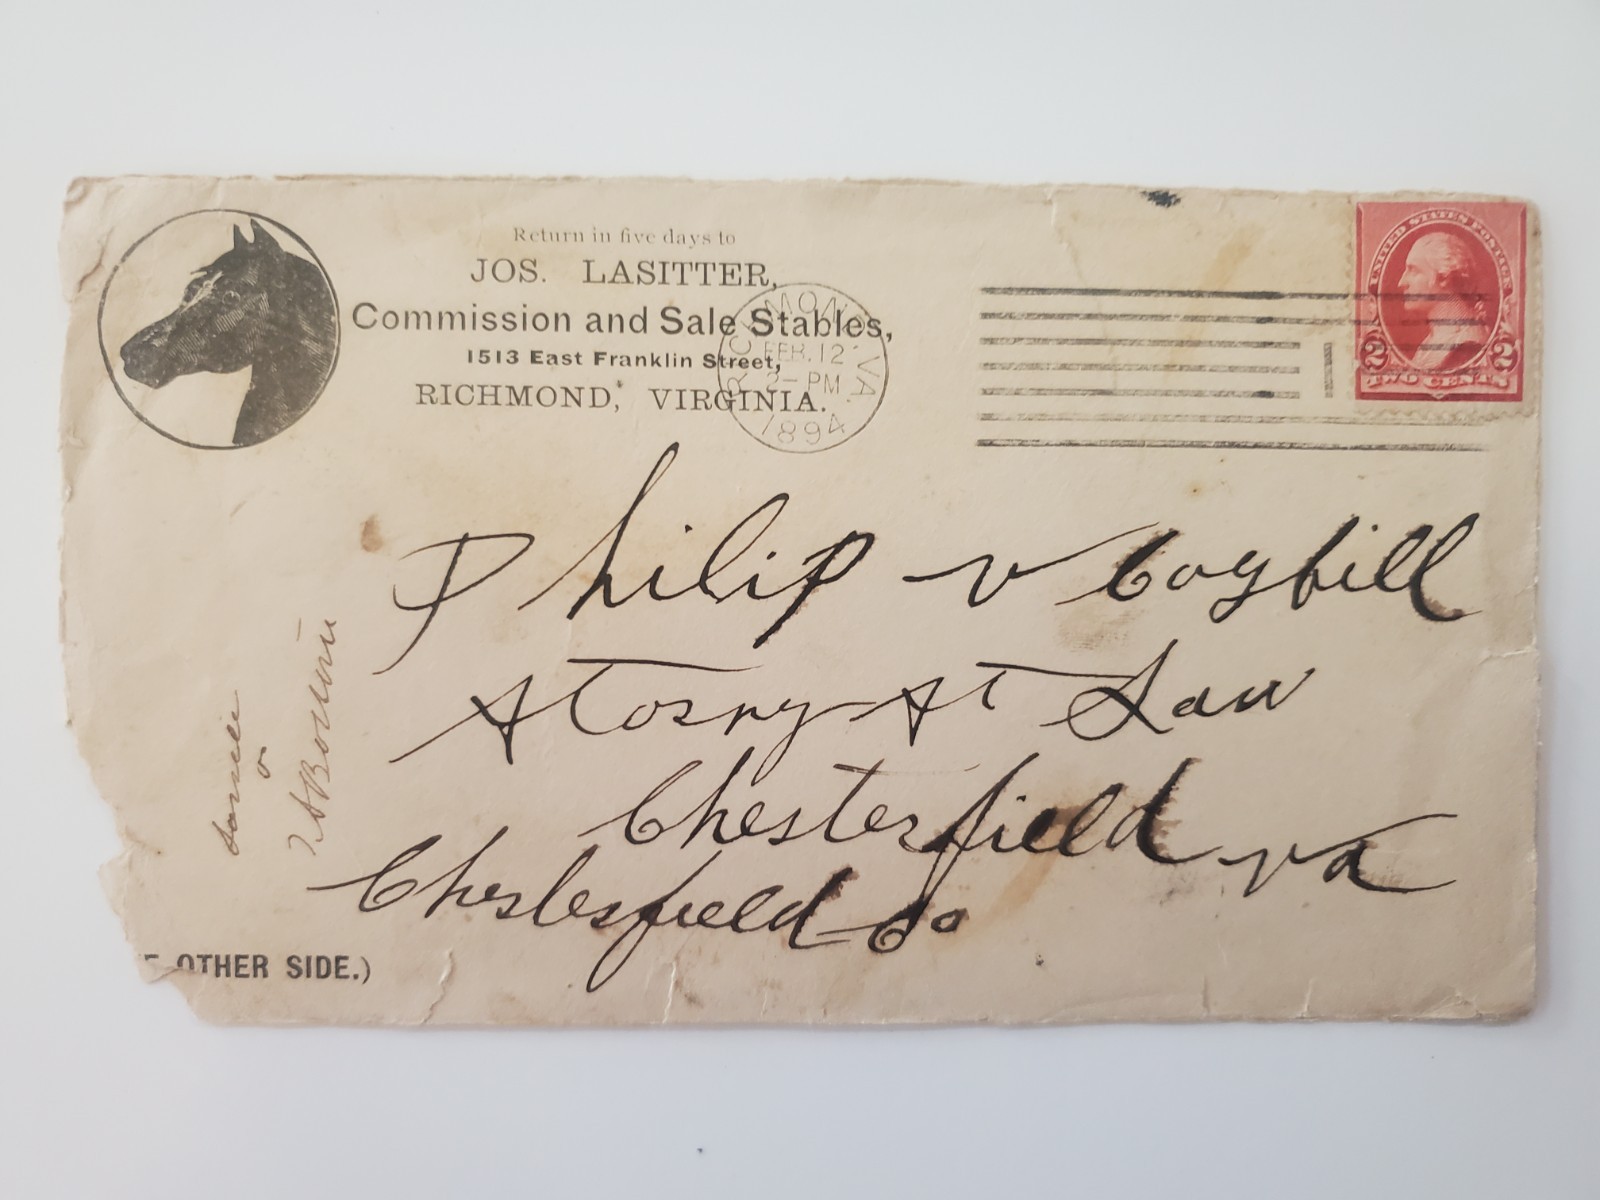 Return in five days to
JOS. LASITTER,
Commission and Sale Stables,
1513 East Franklin Street,
RICHMOND, VIRGINIA.
RICHMOND, VA.
FEB. 12
2 - PM
1894
1
UNITED STATES POSTAGE
2 2
TWO CENTS
Philip V Cogbill
Atorny At Law
Chesterfield Va
Chesterfield Co
OTHER SIDE.)